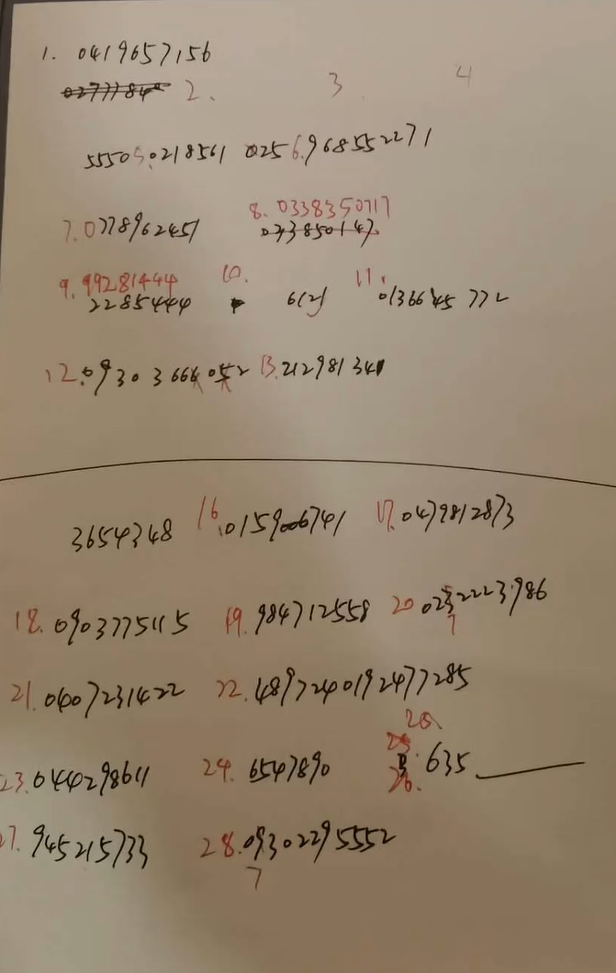 1. 0419657156
2. 3. 4
55505.0218561 0256.968552271
8. 0338350717
7.0778962451
9. 99281444 10. 11.
2285444 612 0136645 772
12.09303666052 13.21298134
3654348 16.0159006741 17.0479812873
18. 0903775115 19. 984712558 20 0232223986
7
21.0407231422 22. 4897240192477285
23.044298611 24. 6547890 635
27. 945215733 28.09302295552
7